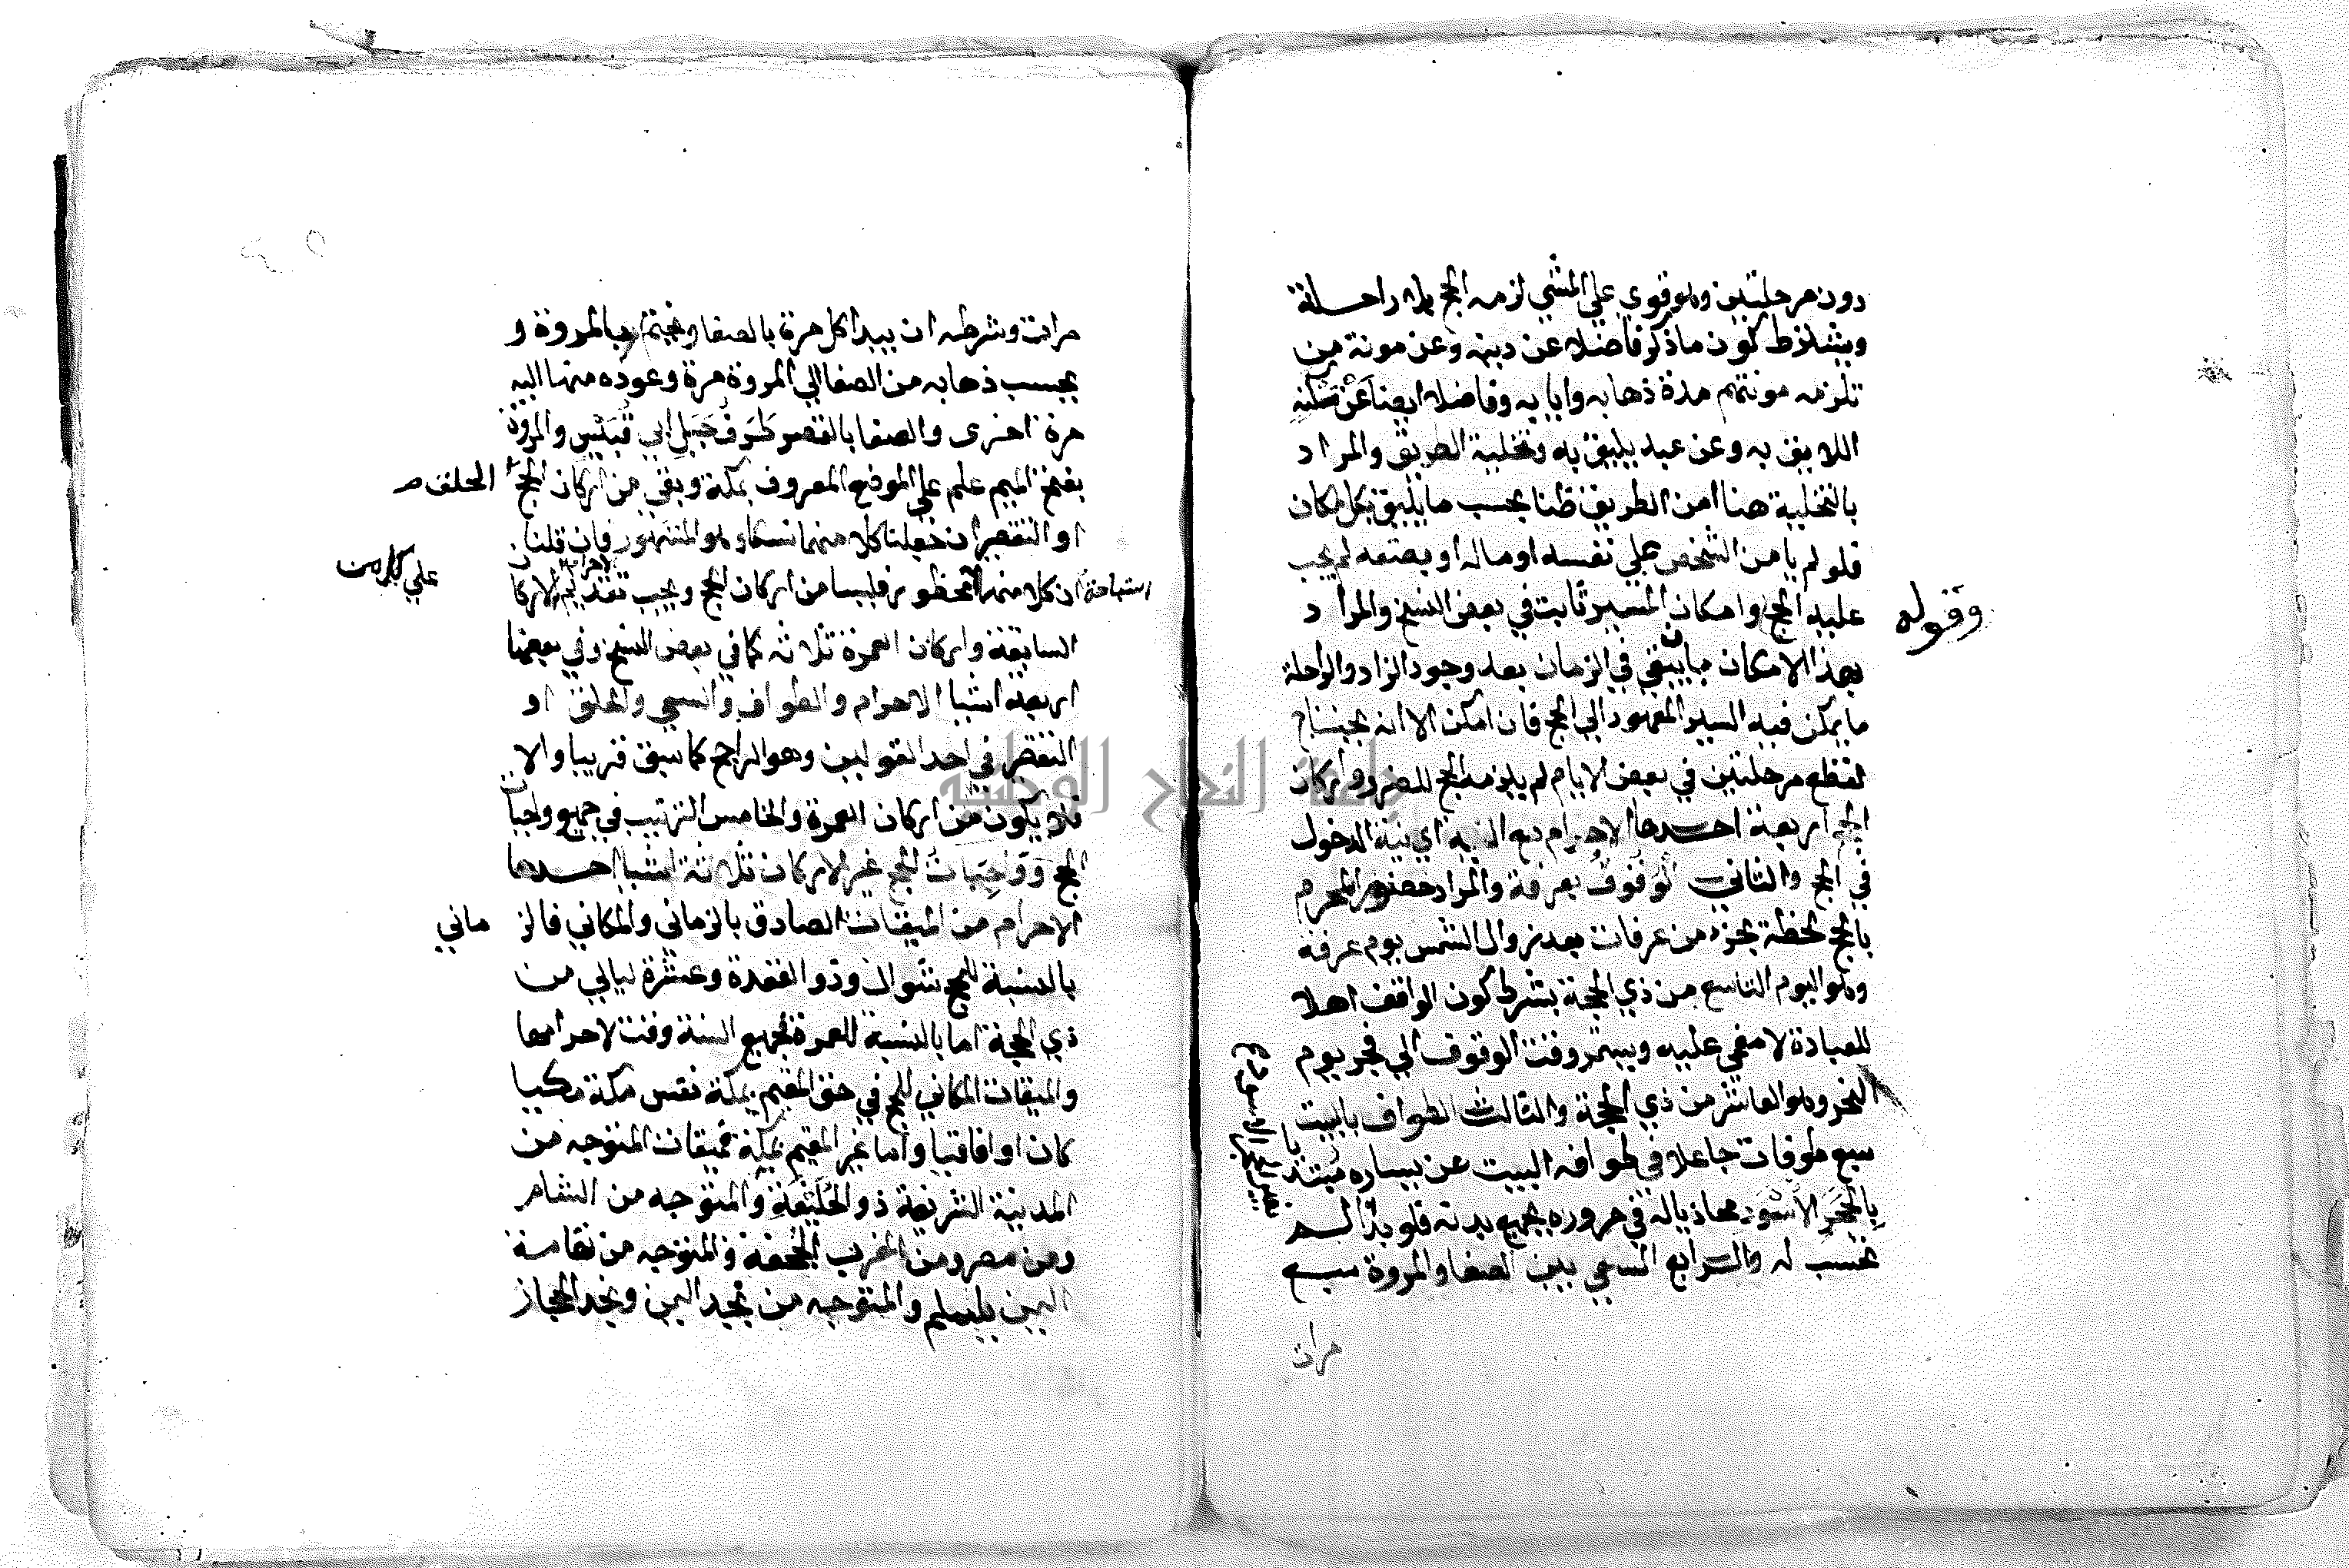 دون مرحلتين وهو قوي علي المشي لزمه الحج بلا راحلة
ويشترط كون ما ذكر فاضلا عن دينه وعن مونة من
تلزمه مونتهم مدة ذهابه وايابه وفاضلا ايضا عن مسكنه
اللايق به وعن عبد يليق به وتخلية الطريق والمراد
بالتخلية هنا امن الطريق ظنا بحسب ما يليق بكل مكان
فلو لم يامن الشخص علي نفسه او ماله او بضعه لم يجب
عليه الحج وامكان المسير ثابت في بعض النسخ والمراد
وقوله
بهذ الامكان ان يبقي في الزمان بعد وجود الزاد والراحلة
ما يمكن فيه السير المعهود الي الحج فان امكن الا انه يحتاج
لقطع مرحلتين في بعض الايام لم يلزمه الحج للضرر واركان
الحج اربعة احدها الاحرام مع النية اي نية الدخول
في الحج والثاني الوقوف بعرفة والمراد حضور المحرم
بالحج لحظة بجزء من عرفات بعد زوال الشمس يوم عرفة
وهو اليوم التاسع من ذي الحجة بشرط كون الواقف اهلا
للعبادة لا مغمي عليه ويستمر وقت الوقوف الي فجر يوم
النحر وهو العاشر من ذي الحجة والثالث الطواف بالبيت
سبع طوفات جاعلا في طوافه البيت عن يساره مبتديا
بالحجر الاسود محاذيا له في مروره بجميع بدنه فلو بدا
بغير الحجر الاسود لم
يحسب له والرابع السعي بين الصفا والمروة سبع
مرات
مرات وشرطه ان يبدا كل مرة بالصفا ويختم بالمروة و
يحسب ذهابه من الصفا الي المروة مرة وعوده منها اليه
مرة اخرى والصفا بالقصر طرف جبل ابي قبيس والمروة
بفتح الميم علم علي الموضع المعروف بمكة وبقي من اركان الحج الحلق
او التقصير ان جعلنا كلا منهما نسكا وهو المشهور فان قلنا
ان كلا منهما استباحة محظور فليسا من اركان الحج ويجب تقديم الاحرام علي كل من الاركان
السابقة واركان العمرة ثلاثة كما في بعض النسخ وفي بعضها
اربعة اشيا الاحرام والطواف والسعي والحلق او
التقصير في احد القولين وهو الراجح كما سبق قريبا والا
فلا يكون من اركان العمرة والخامس الترتيب في جميع واجبات
الحج وواجبات الحج غير الاركان ثلاثة اشيا احدها
الاحرام من الميقات الصادق بالزماني والمكاني فالزماني
بالنسبة للحج شوال وذو القعدة وعشرة ليالي من
ذي الحجة اما بالنسبة للعمرة فجميع السنة وقت لاحرامها
والميقات المكاني للحج في حق المقيم بمكة نفس مكة مكيا
كان او افاقيا واما غير المقيم بمكة فميقات المتوجه من
المدينة الشريفة ذو الحليفة والمتوجه من الشام
ومن مصر ومن المغرب الجحفة والمتوجه من تهامة
اليمن يلملم والمتوجه من نجد اليمن ونجد الحجاز
جامعة النجاح الوطنية